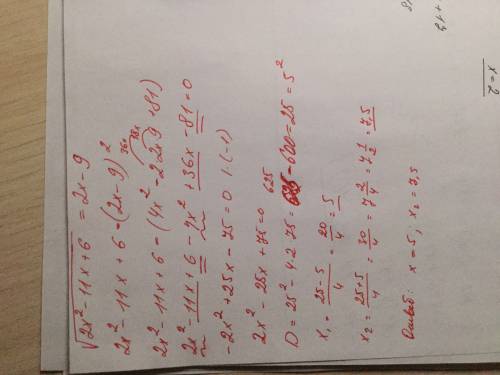 √2x² - 11x + 6 = 2x - 9
2x² - 11x + 6 = (2x - 9)²
36x 18x
2x² - 11x + 6 = (4x² - 2·2x·9 + 81)
2x² - 11x + 6 - 4x² + 36x - 81 = 0
-2x² + 25x - 75 = 0 |·(-1)
2x² - 25x + 75 = 0
625
D = 25² - 4·2·75 = - 600 = 25 = 5²
x₁ = (25 - 5)/4 = 20/4 = 5
x₂ = (25 + 5)/4 = 30/4 = 7 2/4 = 7 1/2 = 7,5
x = 5; x₂ = 7,5
x = 2